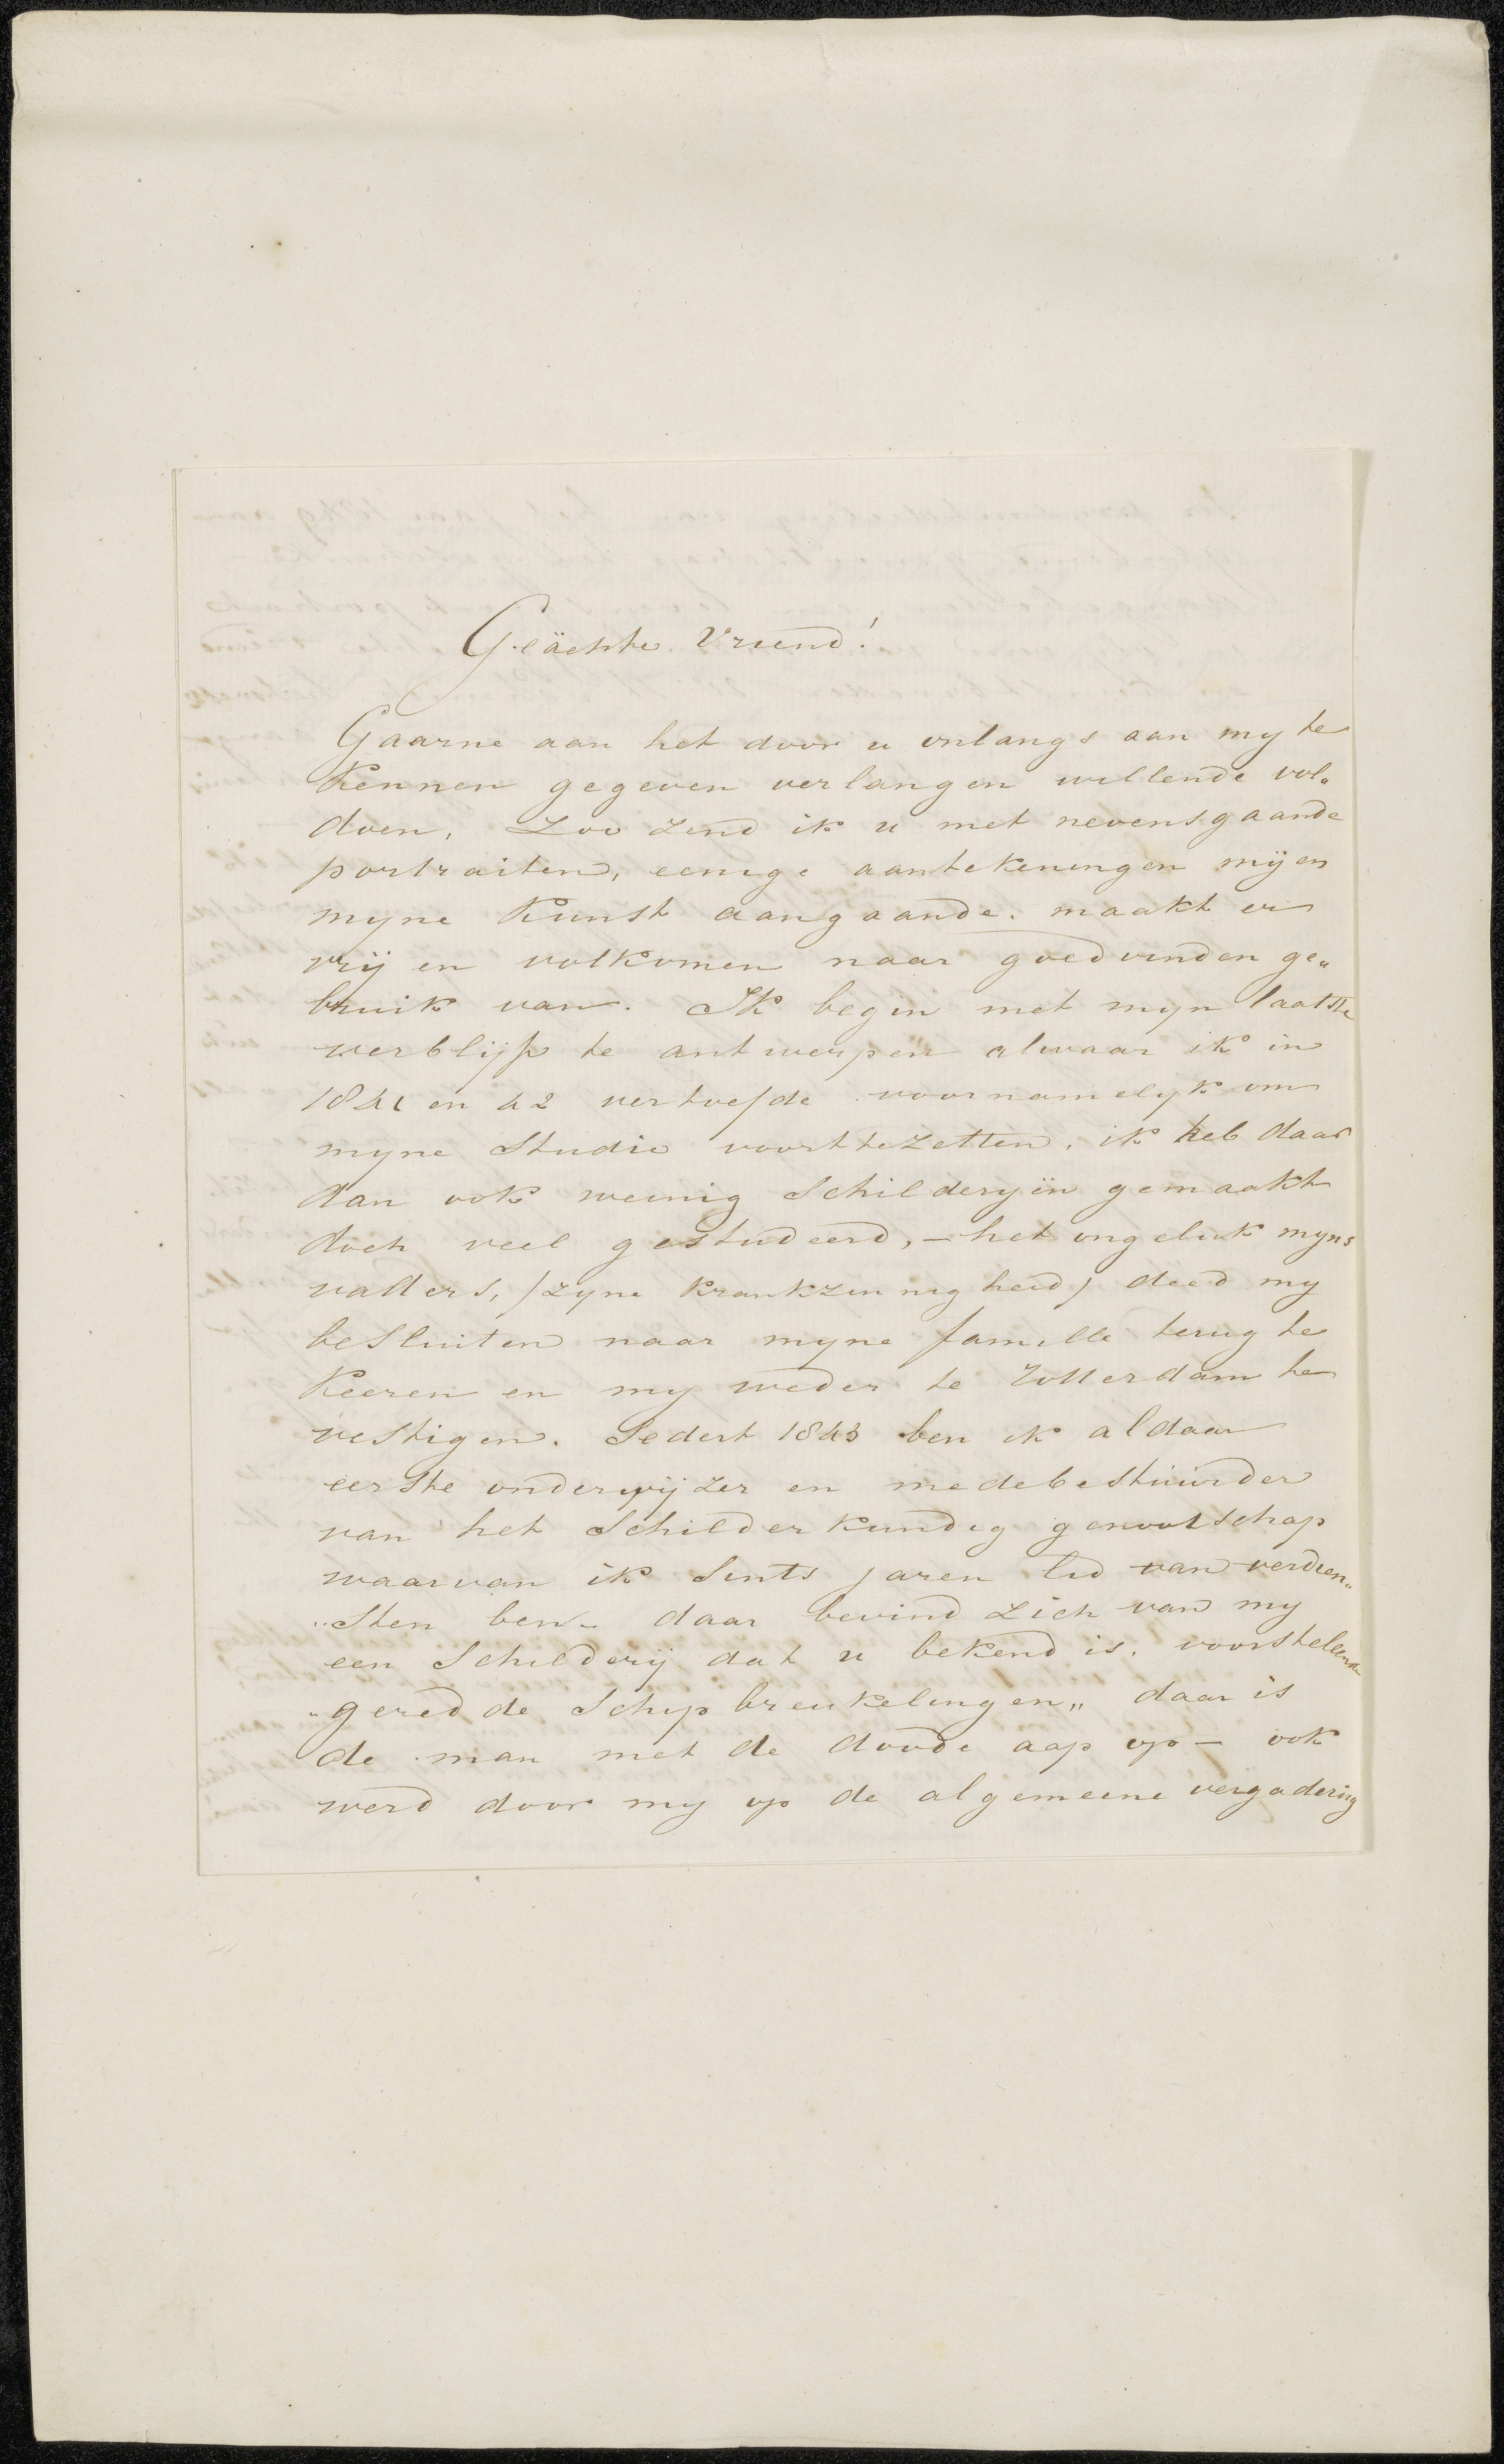 Geächte Vriend!
Gaarne aan het door u onlangs aan my te
kennen gegeven verlangen willende vol„
doen, zoo zend ik u met nevensgaande
portraiten, eenige aantekeningen mij en
myne kunst aangaande. maakt er
vrij en volkomen naar goedvinden ge„
bruik van. Ik begin met myn laatste
verblijf te antwerpen alwaar ik in
1841 en 42 vertoefde voornamelyk om
myne Studie voorttezetten, ik heb daar
dan ook weinig Schilderyën gemaakt
doch veel gestudeerd, – het ongeluk myns
vaders, /zyne krankzinnigheid/ deed my
besluiten naar myne famille terug te
keeren en my weder te Rotterdam te
vestigen. Sedert 1843 ben ik aldaar
eerste onderwijzer en medebestuurder
van het Schilderkundig genootschap
waarvan ik Sints jaren lid van verdien„
„Sten ben – daar bevind zich van my
een Schilderij dat u bekend is, voorstellende
„geredde Schipbreukelingen„ daar is
de man met de doode aap op – ook
werd door my op de algemeene vergadering